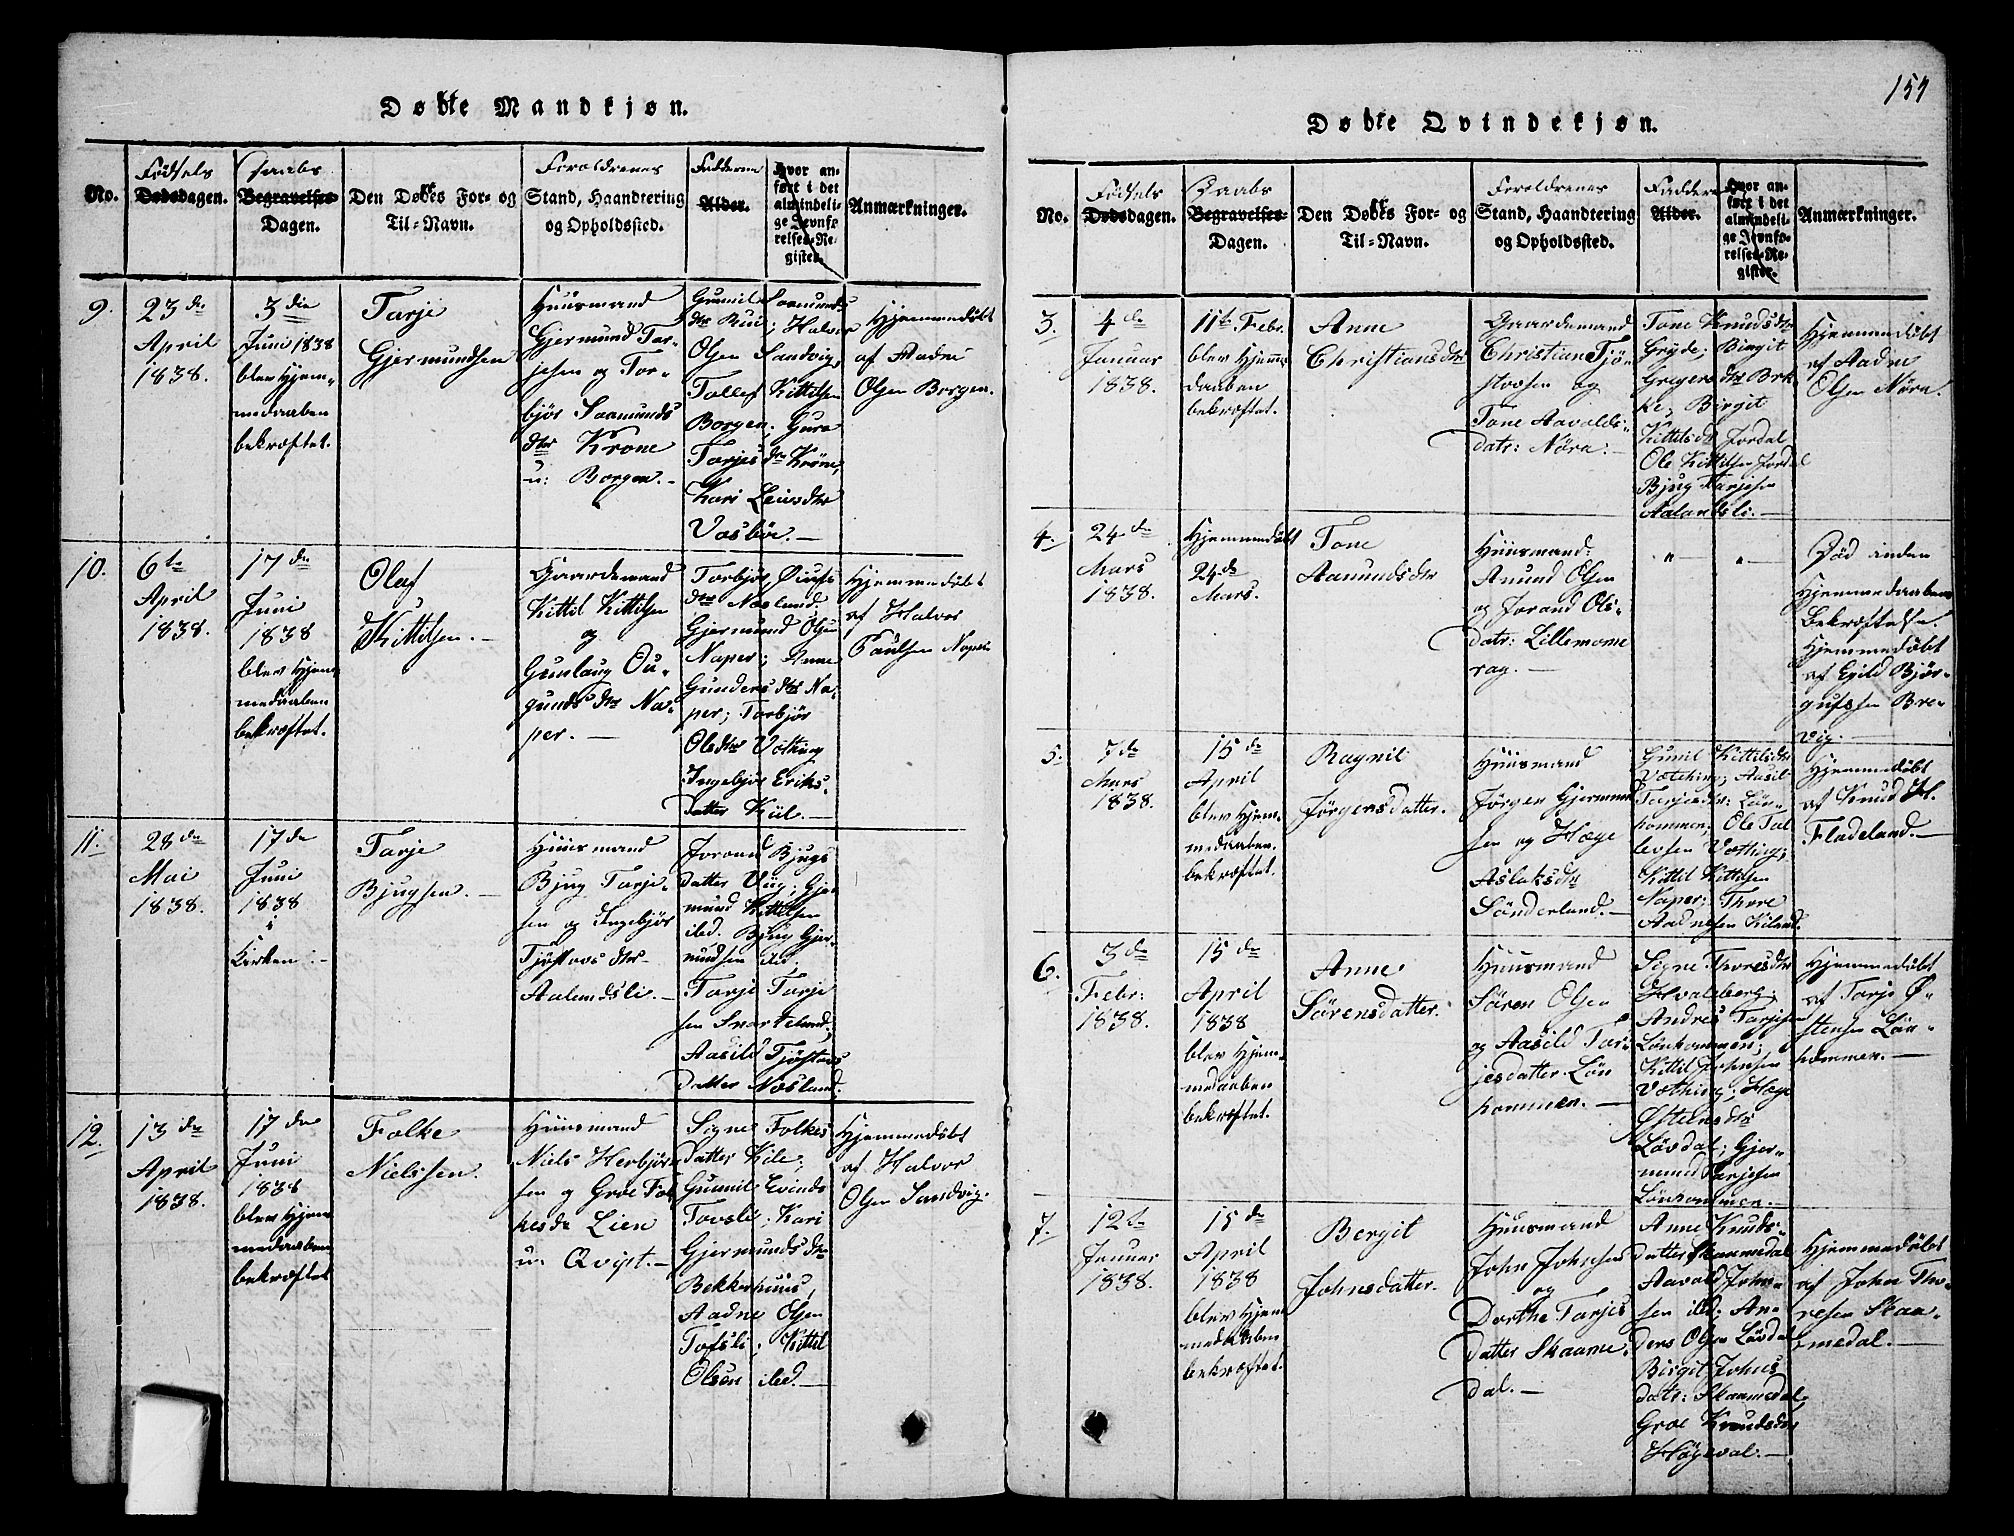 Døbte Mandkjøn.
No.
Fødsels
Dødsdagen.
Daabs
Begravelses-
Dagen.
Den Døbtes For- og
Til-Navn.
Foreldrenes
Stand, Haandtering
og Opholdssted.
Fadderne
Alder.
Hvor an-
ført i det
almindeli-
ge Jevnfø-
relses-Re-
gister.
Anmærkninger.
9.
23de
April
1838.
3die
Juni 1838
blev Hjem-
medaaben
bekræftet.
Tarje
Gjermundsen
Huusmand
Gjermund Tar-
jesen og Tor-
bjør Saamunds
dtr Krone
u: Borgen.-
Gunil Saamunds
dtr Rui; Halvor
Olsen Sandvig,
Tollef Kittilsen
Borgen; Gura
Tarjesdtr Krone,
Kari Leiusdtr
Vasbøe.-
Hjemmedøbt
af Aadne
Olsen Borgen.
10.
6te
April
1838.
17de
Juni
1838
blev Hjem
medaaben
bekræftet.
Olaf
Kittilsen.-
Gaardemand
Kittil Kittilsen
og
Gunlaug Ou-
gundsdtr Na-
per.-
Torbjør
dtr Næslund;
Gjermund Olsen
Naper; Anne
Gundersdtr Na-
per; Torbjør
Olsdtr Vothing
Ingebjør Eriks-
datter Kiil.-
Hjemmedøbt
af Halvor
Paulsen Naper
11.
28de
Mai
1838.
17de
Juni
1838
i
Kirken.-
Tarje
Bjugsen.-
Huusmand
Bjug Tarje-
sen og Ingebjør
Tjøstovsdtr
Aalandsli.-
Jorand Bjugs
datter Viig; Gjer
mund Kittilsen
ibd. Bjug Gjer-
mundsen ibd.
Tarje Tarje
sen Snarteland,
Aasild Tjøstovs
datter Næsland.
12.
13de
April
1838.
17de
Juni
1838
blev Hjem
medaaben
bekræftet
Folke
Nielssen.
Huusmand
Niels Herbjør
sen og Groe Fol
kesdr Lien
u: Qvist.-
Signe Folkes
datter Kile;
Gunnil Evinds
Tovsli; Kari
Gjermundsdtr
Bekkerhuus,
Aadne Olsen
Tofsli; Kittel
Olsen ibd.-
Hjemmedøbt
af Halvor
Olsen Sandvig.
157
Døbte Qvindekjøn.
No.
Fødsels
Dødsdagen.
Daabs
Begravelses-
Dagen.
Den Døbtes For- og
Til-Navn.
Foreldrenes
Stand, Haandtering
og Opholdssted.
Faddere
Alder.
Hvor an-
ført i det
almindeli-
ge Jevnfø-
relses-Re-
gister.
Anmærkninger.
3.
4de
Januar
1838.
11te Febr.
blev Hjemme-
daaben
bekræftet.
Anne
Christiansdtr
Gaardemand
Christian Tjø-
stovsen og
Tone Aavolds-
datr: Nøra:-
Tone Knudsdtr
Gryde; Birgit
Grigersdtr Brk-
ke; Birgit
Kittilsdr Jordal
Ole Kittilsen Jordal
Bjug Tarjesen
Aalandsli.-
Hjemmedøbt
af Aadne
Olsen Nøra.
4.
24de
Mars
1838.
Hjemmedøbt
24de
Mars.
Tone
Aamundsdtr
Huusmand:
Anund Olsen
og Jorand Ols-
datr: Lillemome
rag.-
" - " -
Død inden
Hjemmedaabens
Bekræftelse.
Hjemmedøbt
af Egild Bjør-
gufssen Bre-
vig.-
5.
7de
Mars
1838.
15de
April
blev Hjem-
medaaben
bekræftet.
Ragnil
Jørgensdatter.
Huusmand
Jørgen Gjermun
sen og Hæge
Aslaksdtr
Sønderland.-
Gunil Kittilsdtr
Votthing; Aasil
Tarjesdr: Løn-
kommen; Ole Tal
levsen Vothing;
Kittil Kittilsen
Naper; Thore
Aadnesen Kiland.
Hjemmedøbt
af Knud
Fladeland.-
6.
3de
Febr:
1838.
15de
April
1838
blev Hjem-
medaaben
bekræftet.
Anne
Sørensdatter.
Huusmand
Søren Olsen
og Aasild Tar-
jesdatter Løn
kommen.-
Signe Thoresdtr
Hvalsberg;
Andres Tarjesen
Lønkommen;
Kittil Johnsen
Vothing; Hæge
Østensdtr
Løvdal; Gjer-
mund Tarjesen
Lønkommen.-
Hjemmedøbt
af Tarje Ø-
stensen Løn-
kommen.-
7.
12te
Januar
1838.
15de
April
1838
blev Hjem
medaaben
bekræftet.
Bergit
Johnsdatter.
Huusmand
John Johnsen
og
Dorthe Tarjes
datter Skaame-
dal.-
Anne Knuds-
datter Skaamedal
Aavold John-
sen ibd; An-
ders Olsen Løvdal
Birgit Johns
datr: Skaamedal,
Groe Knudsdtr
Høgeval.-
Hjemmedøbt
af John Tho-
resen Skaa-
medal.-